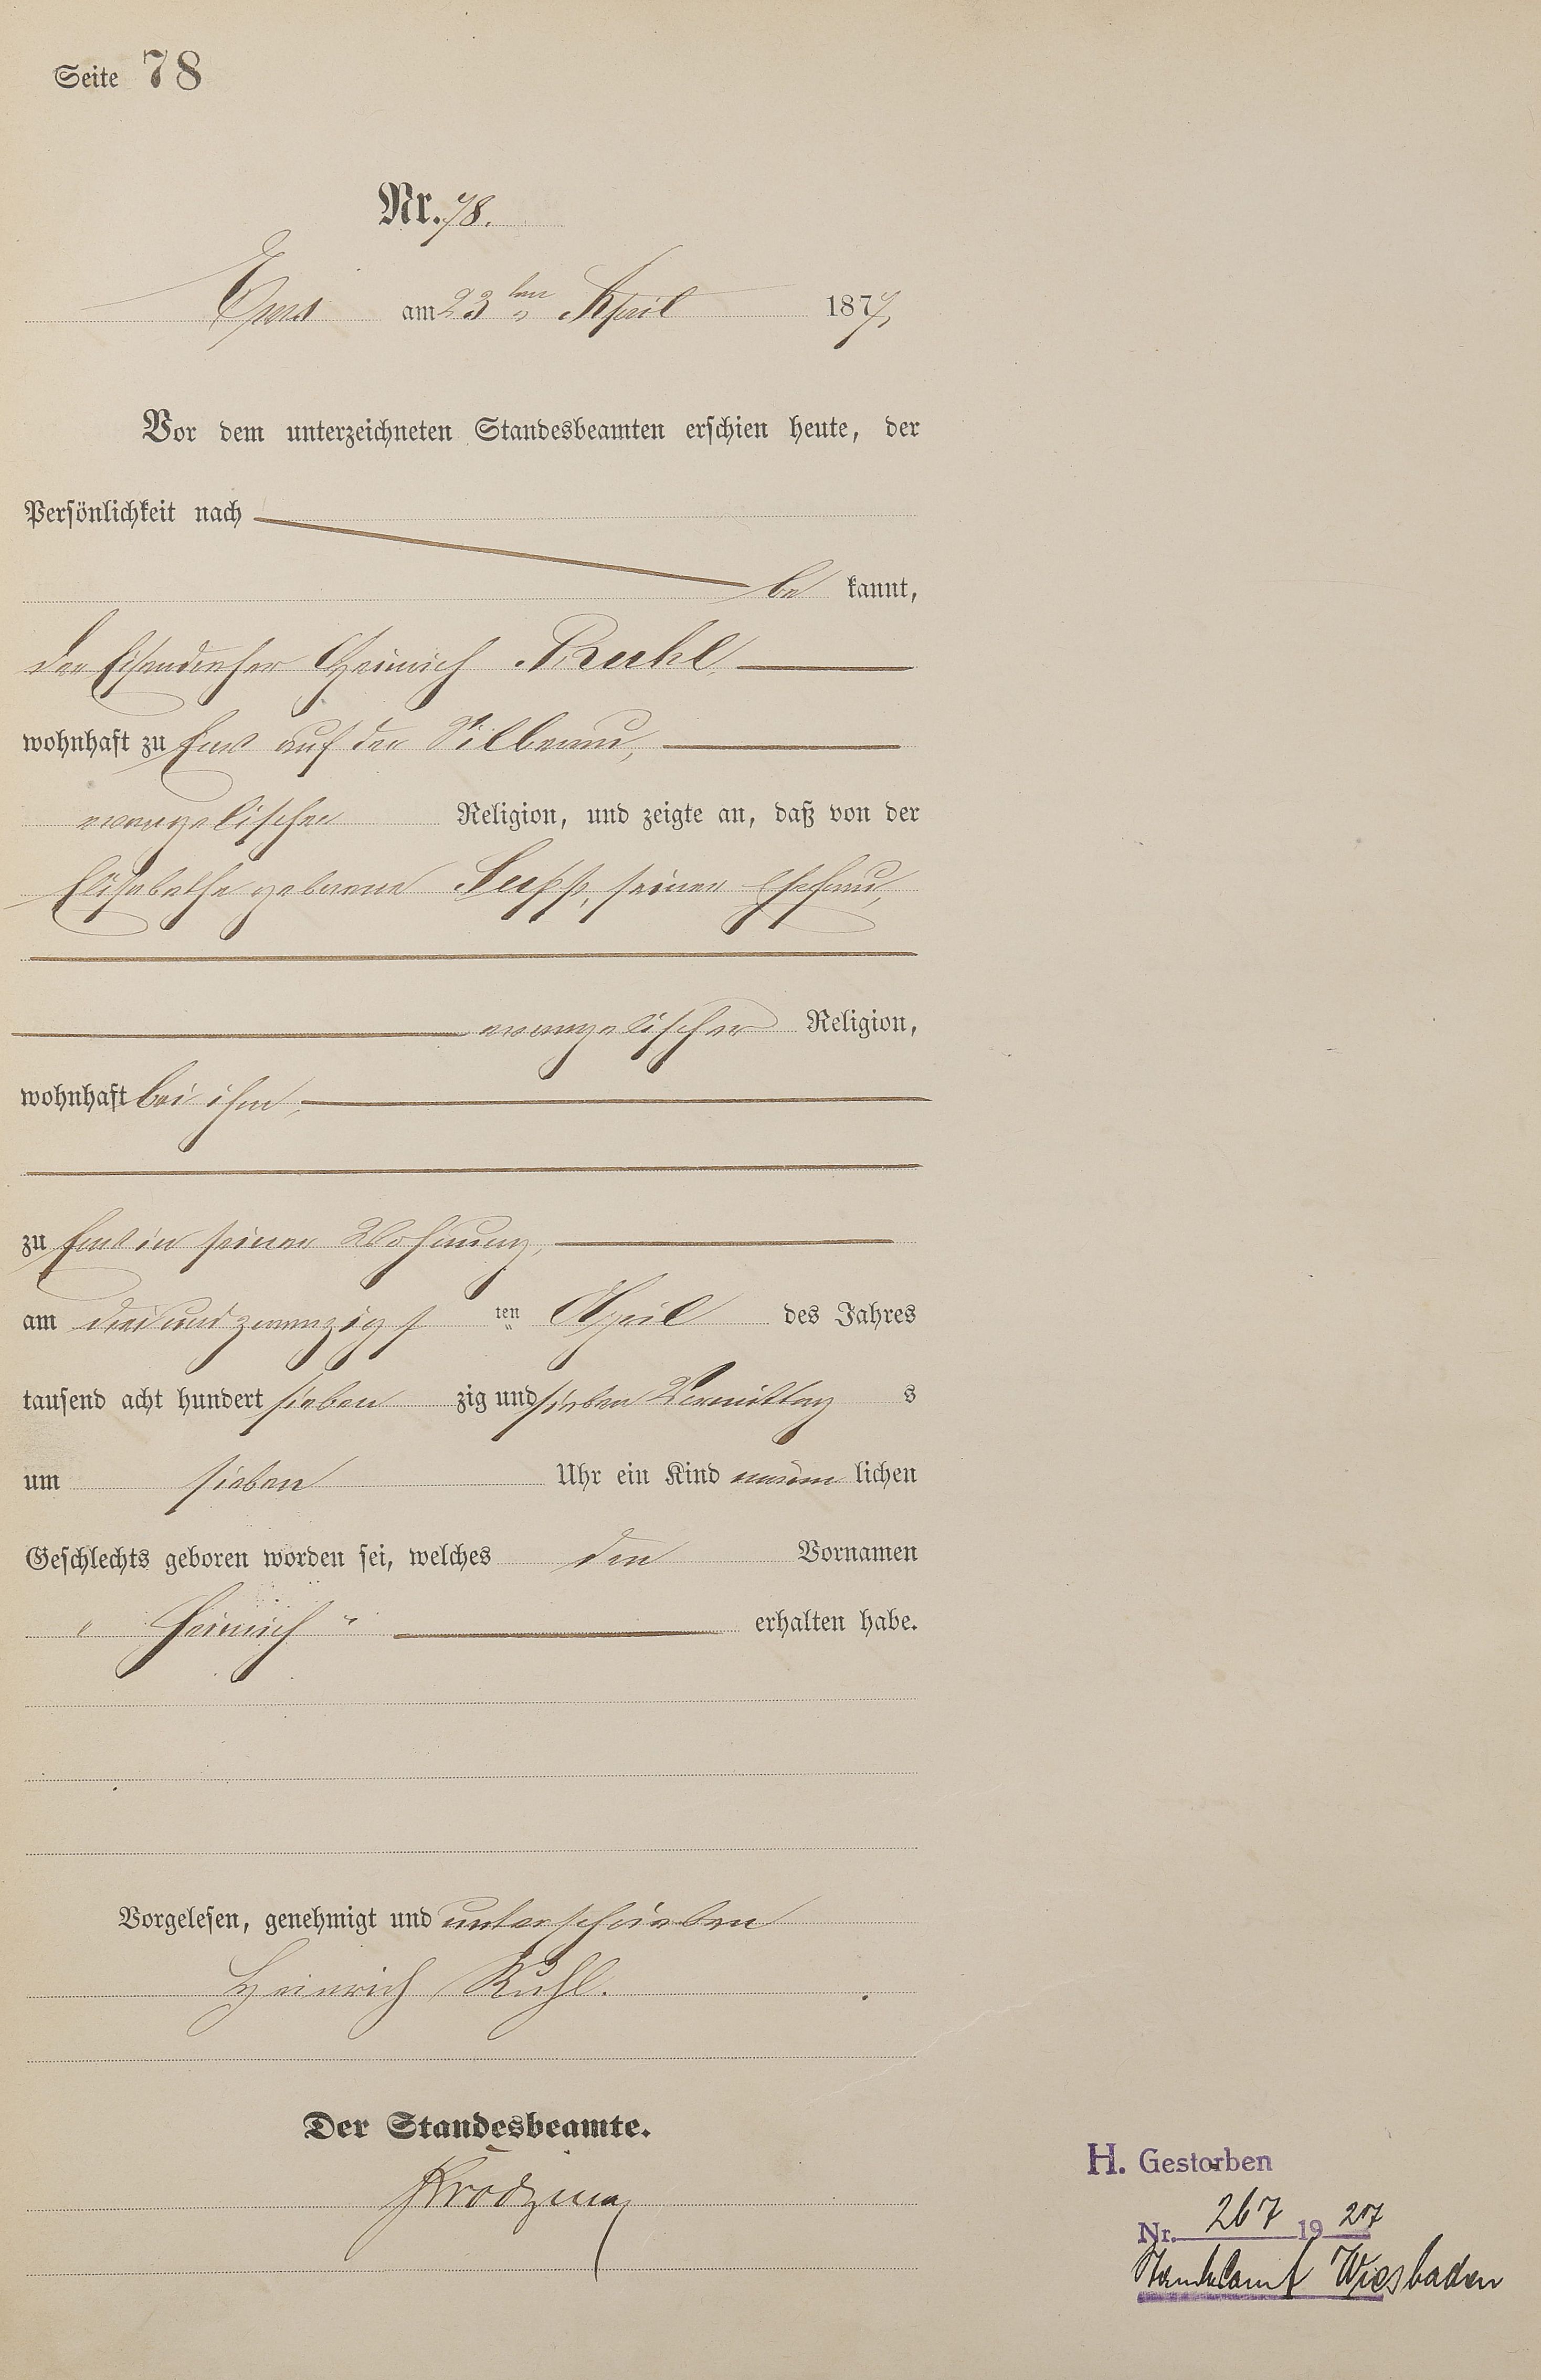 Seite 78
Nr. 78.
Ems am 23ten April 1877.
Vor dem unterzeichneten Standesbeamten erschien heute, der
Persönlichkeit nach
be kannt,
der Eisendreher Heinrich Ruhl,
wohnhaft zu Ems auf der Silberau,
evangelischer Religion, und zeigte an, daß von der
Elisabethe geborene Supp, seiner Ehefrau,
evangelischer Religion,
wohnhaft bei ihm,
zu Ems in seiner Wohnung,
am dreiundzwanzigsten April des Jahres
tausend acht hundert sieben zig und sieben Vormittags
um sieben Uhr ein Kind männlichen
Geschlechts geboren worden sei, welches den Vornamen
"Heinrich" erhalten habe.
Vorgelesen, genehmigt und unterschrieben
Heinrich Ruhl.
Der Standesbeamte.
H. Gestorben
Nr. 267 19
Standesamt Wiesbaden